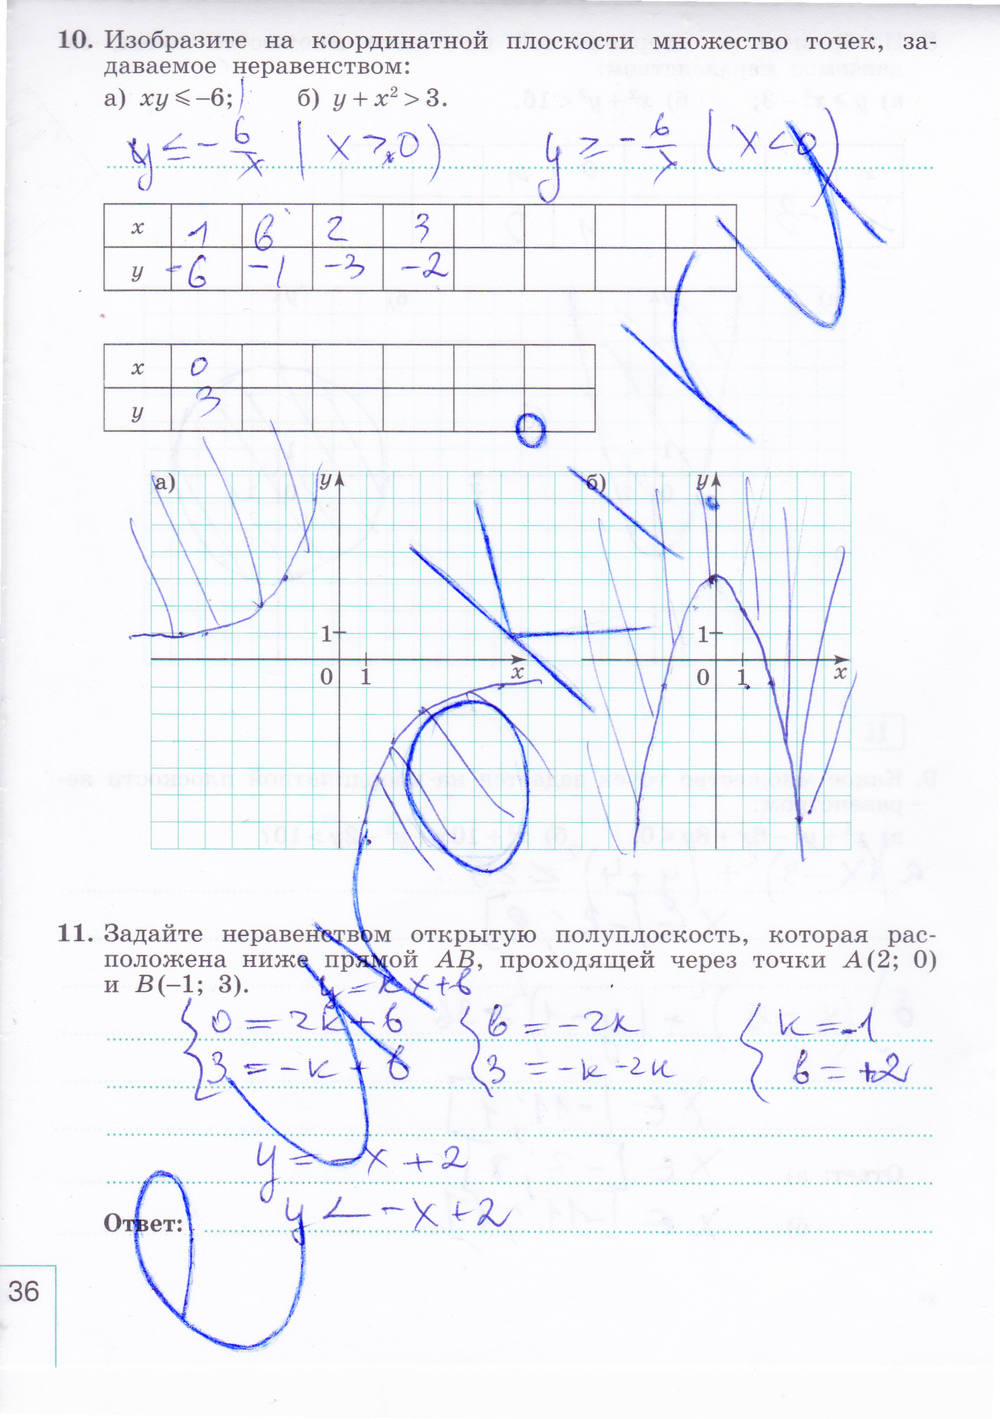 10. Изобразите на координатной плоскости множество точек, за-
даваемое неравенством:
а) xy ⩽ –6; б) y + x² > 3.
y ≤ - 6/x ( x > 0 ) y ≥ - 6/x ( x < 0 )
x 1 6 2 3
y -6 -1 -3 -2
x 0
y 3
а) y 1 0 1 x
б) y 1 0 1 x
11. Задайте неравенством открытую полуплоскость, которая рас-
положена ниже прямой AB, проходящей через точки A(2; 0)
и B(–1; 3). y = kx+b
{ 0 = 2k + b { b = -2k { k = -1
{ 3 = -k + b { 3 = -k -2k { b = +2
y = -x + 2
Ответ: y < -x+2
36